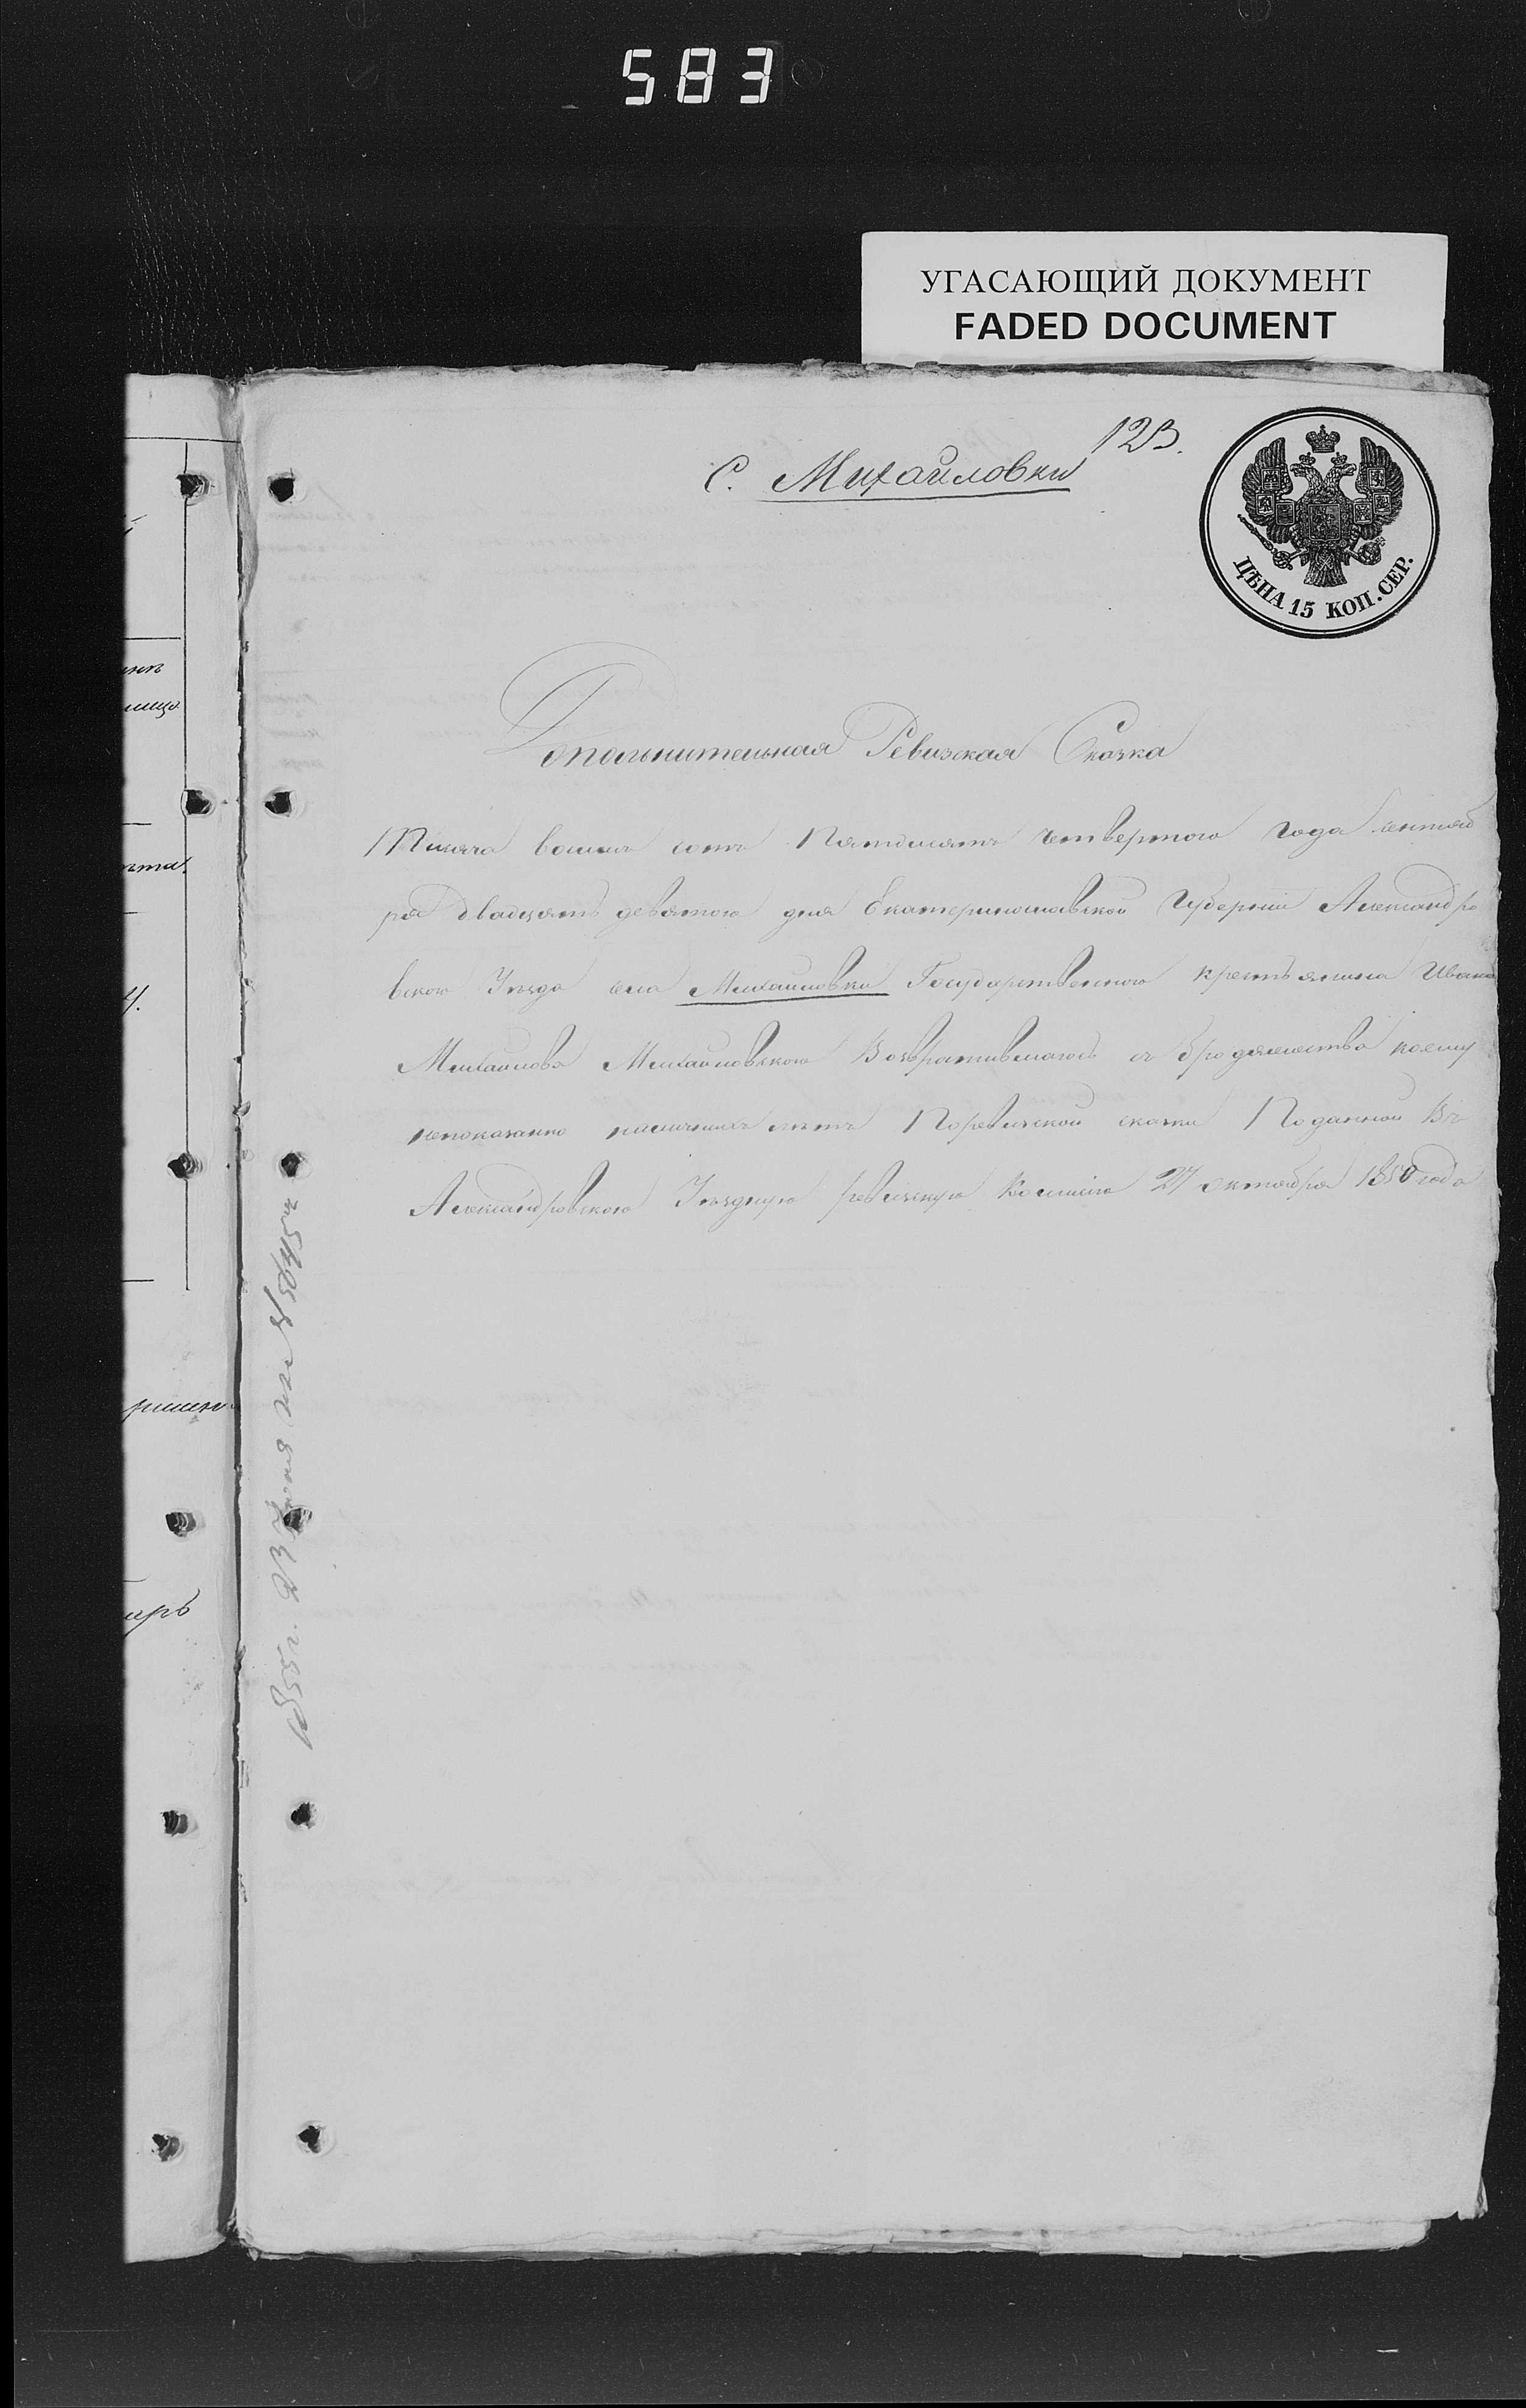 583
УГАСАЮЩИЙ ДОКУМЕНТ
FADED DOCUMENT
123.
С. Михайловки
ЦѢНА 15 КОП. СЕР.
Дополнительная Ревизская Сказка
Тысяча восемь сотъ Пятдесятъ четвертого года сентяб
ря двадцять девятого дня Екатеринославской Губерніи Александро
вского Уѣзда села Михайловки Государственного крестьянина Ивана
Михайлова Михайловского Возвратившагось съ бродяжества коему
непоказанно лѣтъ Поревизской сказки Поданной Въ
Александровскою Уѣздную ревизскую Комисію 27 октября 1850 года
1855 г. 23